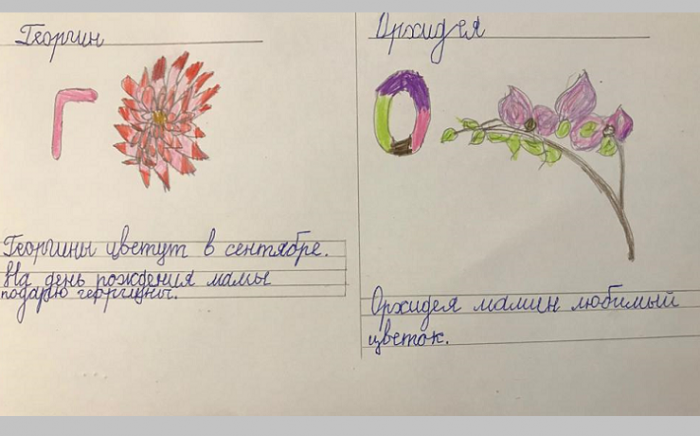 Георгин
Г
Георгины цветут в сентябре.
На день рождения мамы
подарю георгины.
Орхидея
О
Орхидея мамин любимый
цветок.